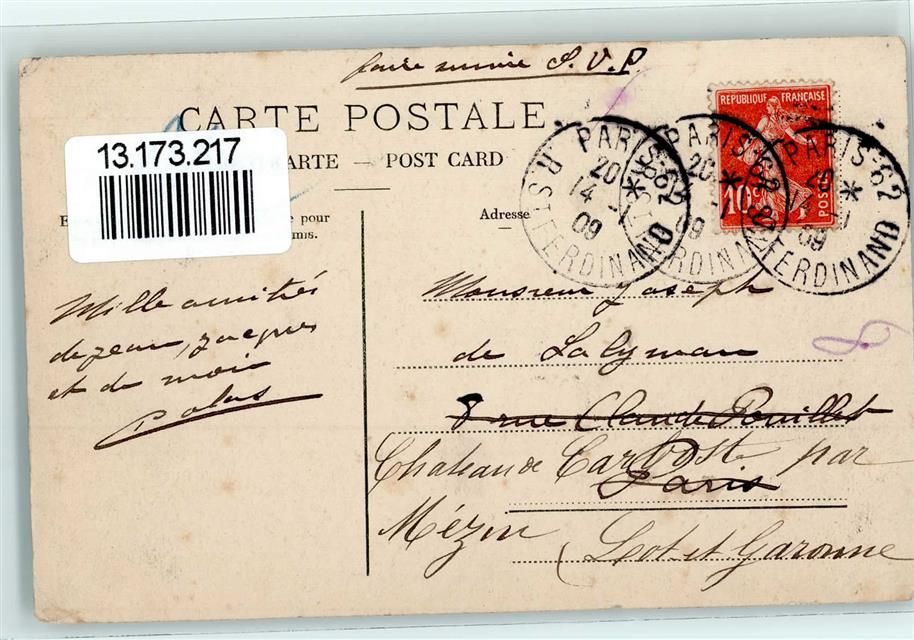 faire suivre S.V.P
CARTE POSTALE
13.173.217
CARTE — POST CARD
pour
mis.
Adresse
REPUBLIQUE FRANÇAISE
10c
POSTES
PARIS-62
20 *
14 -
09
R. ST FERDINAND
PARIS-62
20 *
09
FERDINAND
PARIS-62
*
09
FERDINAND
8
Mille amitiés
de Jean, Jacques
et de moi
Monsieur Joseph
de Lalyman
8 rue Claude Pouillet
Paris
Chateau de par
Mézin
(Lot et Garonne